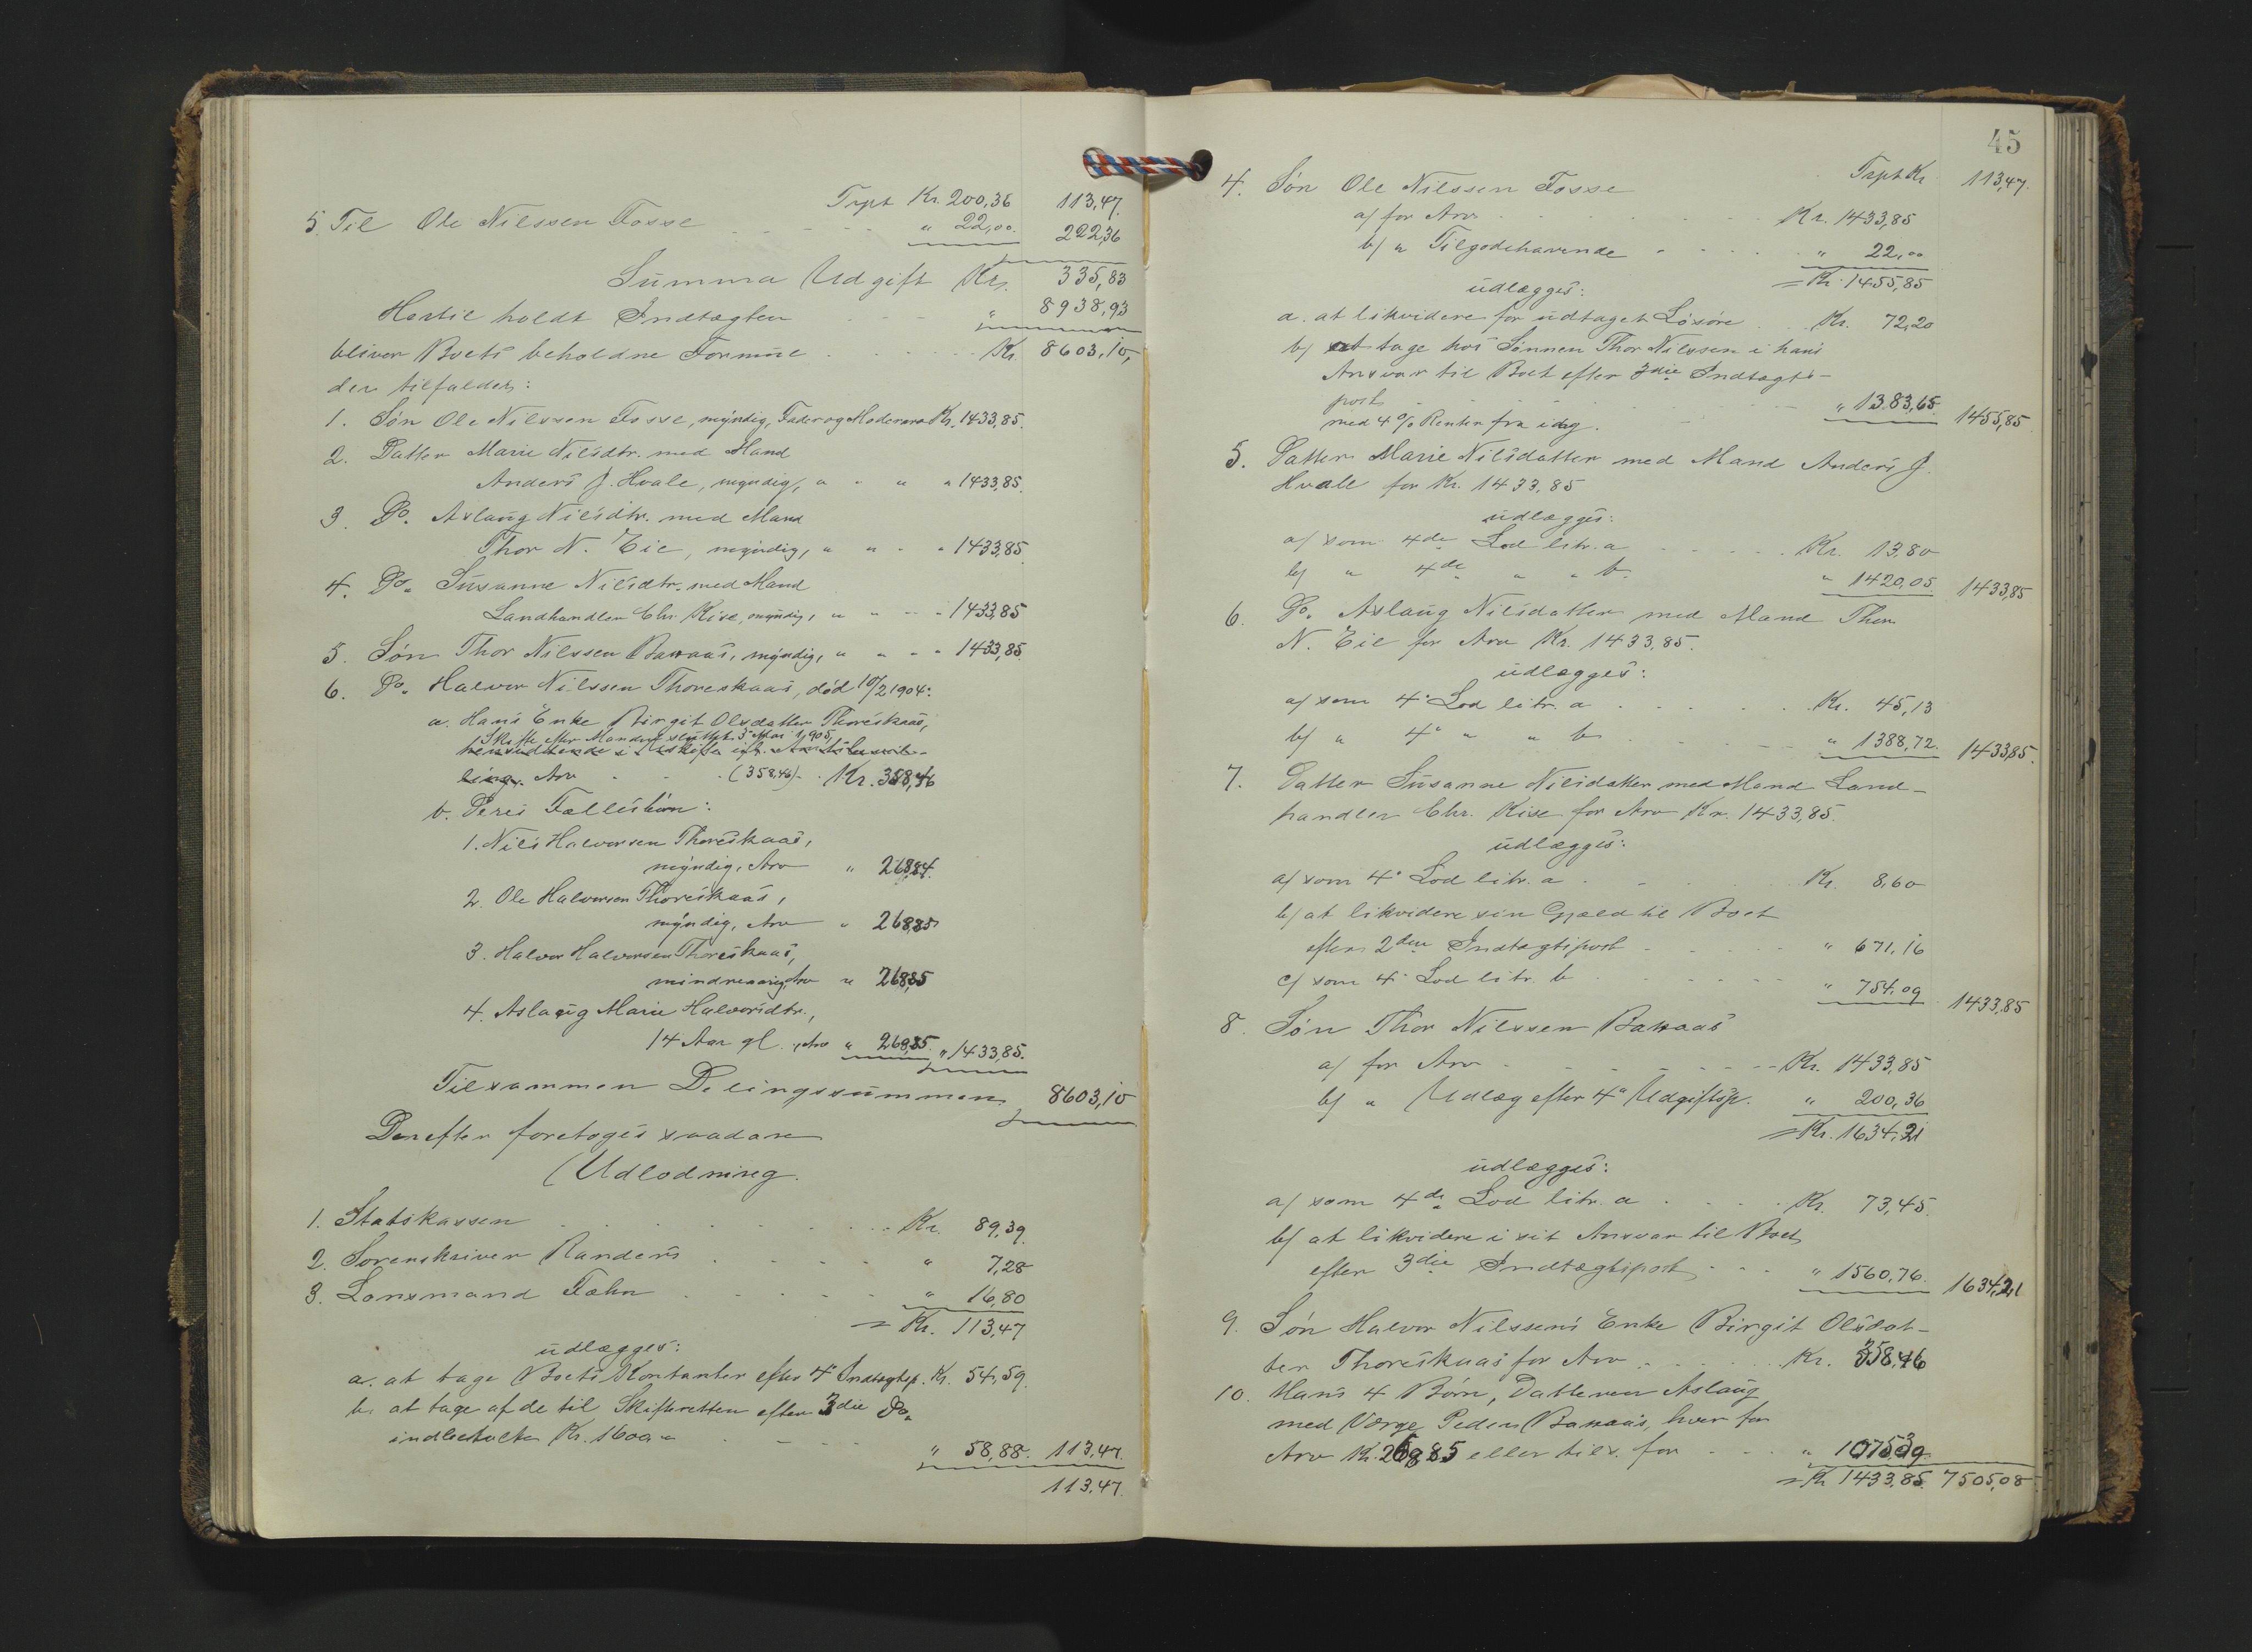 Trpt Kr. 200,36 113,47.
5. Til Ole Nilssen Fosse " 22,00. 222,36
Summa Udgift Kr. 335,83
Hertil holdt Indtægten " 8938,93
bliver Boets beholdne Formue Kr. 8603,10,
der tilfalder:
1. Søn Ole Nilssen Fosse, myndig, Fader og Moderarv Kr. 1433,85.
2. Datter Marie Nilsdtr. med Mand
Anders J. Hvale, myndig, " " " " 1433,85.
3. Do. Aslaug Nilsdtr. med Mand
Thor N. Eie, myndig, " " " " 1433,85
4. Do. Susanne Nilsdtr. med Mand
Landhandler Chr. Kise, myndig, " " " " 1433,85
5. Søn Thor Nilssen Bakaas, myndig, " " " " 1433,85.
6. Do. Halvor Nilssen Thoreskaas, død 10/2 1904:
a. Hans Enke Birgit Olsdatter Thoreskaas,
Skifte efter Manden sluttet 3 Mai 1905,
Arv (358,46) Kr. 358,46
b. Deres Fællesbørn:
1. Nils Halvorsen Thoreskaas,
myndig, Arv " 268,84.
2. Ole Halvorsen Thoreskaas,
myndig, Arv " 268,85
3. Halvor Halvorsen Thoreskaas,
mindreaarig, Arv " 268,85
4. Aslaug Marie Halvorsdtr.,
14 Aar gl., Arv " 268,85. " 1433,85.
Tilsammen Delingssummen 8603,10
Derefter foretoges saadan
Udlodning.
1. Statskassen Kr. 89,39.
2. Sorenskriver Randers " 7,28
3. Lensmand Fæhn " 16,80
= Kr. 113,47
udlægges:
a. at tage Boets Kontanter efter 4° Indtægtsp. Kr. 54,59.
b. at tage af de til Skifteretten efter 3die Do.
indbetalte Kr. 1600 " " 58,88. 113,47.
113,47.
45
Trpt Kr. 113,47.
4. Søn Ole Nilssen Fosse
a/ for Arv Kr. 1433,85
b/ " Tilgodehavende " 22,00
= Kr. 1455,85
udlægges:
a. at likvidere for udtaget Løsøre Kr. 72,20
b/ at tage hos Sønnen Thor Nilssen i hans
Ansvar til Boet efter 3die Indtægts-
post " 1383,65.
med 4% Renter fra idag. 1455,85
5. Datter Marie Nilsdatter med Mand Anders J.
Hvale for Kr. 1433,85
udlægges:
a/ som 4de Lod litr. a Kr. 13,80
b/ " 4de " " b. " 1420,05. 1433,85
6. Do. Aslaug Nilsdatter med Mand Thor
N. Eie for Arv Kr. 1433,85.
udlægges:
a/ som 4° Lod litr. a Kr. 45,13
b/ " 4° " " b " 1388,72. 1433,85.
7. Datter Susanne Nilsdatter med Mand Land-
handler Chr. Kise for Arv Kr. 1433,85.
udlægges:
a/ som 4° Lod litr. a Kr. 8,60
b/ at likvidere sin Gjæld til Boet
efter 2den Indtægtspost " 671,16
c/ som 4° Lod litr. b " 754,09 1433,85
8. Søn Thor Nilssen Bakaas
a/ for Arv Kr. 1433,85
b/ " Udlæg efter 4° Udgiftsp. " 200,36
= Kr. 1634,21
udlægges:
a/ som 4de Lod litr. a Kr. 73,45.
b/ at likvidere i sit Ansvar til Boet
efter 3die Indtægtspost " 1560,76. 1634,21
9. Søn Halvor Nilssens Enke Birgit Olsdat-
ter Thoreskaas for Arv Kr. 358,46
10. Hans 4 Børn, Datteren Aslaug
med Værge Peder Bakaas, hver for
Arv Kr. 268,85 eller tils. for " 1075,39
= Kr. 1433,85. 7505,08.